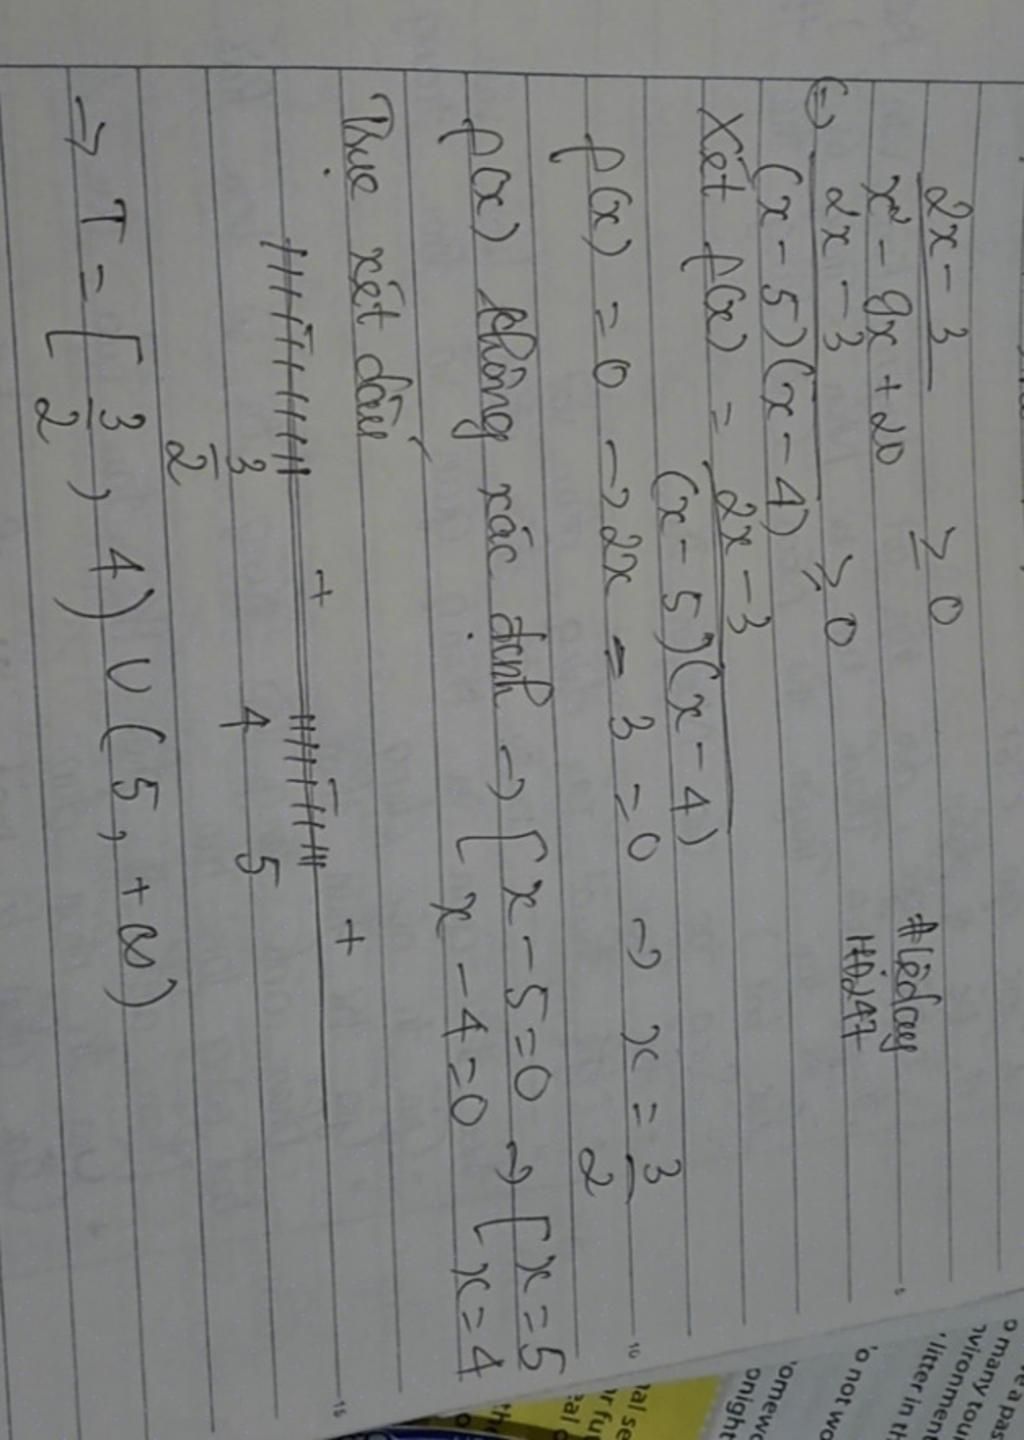 2x - 3
x² - 9x + 20
≥ 0
#lêdcey
HĐ247
⇔ 2x - 3
(x - 5)(x - 4)
≥ 0
Xét f(x) = 2x - 3
(x - 5)(x - 4)
f(x) = 0 → 2x = 3 = 0 → x = 3
2
f(x) không xác định → [ x - 5 = 0 → [ x = 5
x - 4 = 0 x = 4
Trục xét dấu
- + - +
3 4 5
2
⇒ T = [ 3 , 4) ∪ (5, +∞)
2
o many tour
nvironment
litter in th
o not wo
omewo
onight